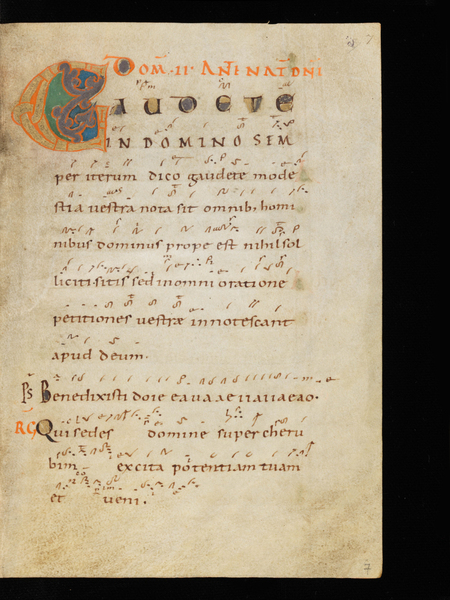 DOM·II· ANTE NAT DNI
GAUDETE
IN DOMINO SEM
per iterum dico gaudete mode
stia uestra nota sit omnib; homi
nibus dominus prope est nihil sol
liciti sitis sed in omni oratione
petitiones uestræ innotescant
apud deum.
Ps Benedixisti dn̄e e a u a ae ii a ii a e a o.
RG Qui sedes domine super cheru
bim excita potentiam tuam
et ueni.
7